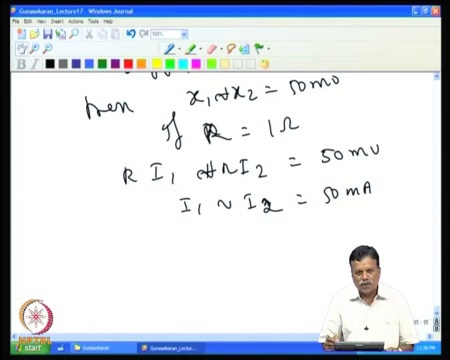 Gunasekaran_Lecture17 - Windows Journal
File Edit View Insert Actions Tools Help
100%
B I
then x₁ ~ x₂ = 50 mV
If R = 1Ω
R I₁ ~ R I₂ = 50 mV
I₁ ~ I₂ = 50 mA
NPTEL
start Gunasekaran Gunasekaran_Lectur...